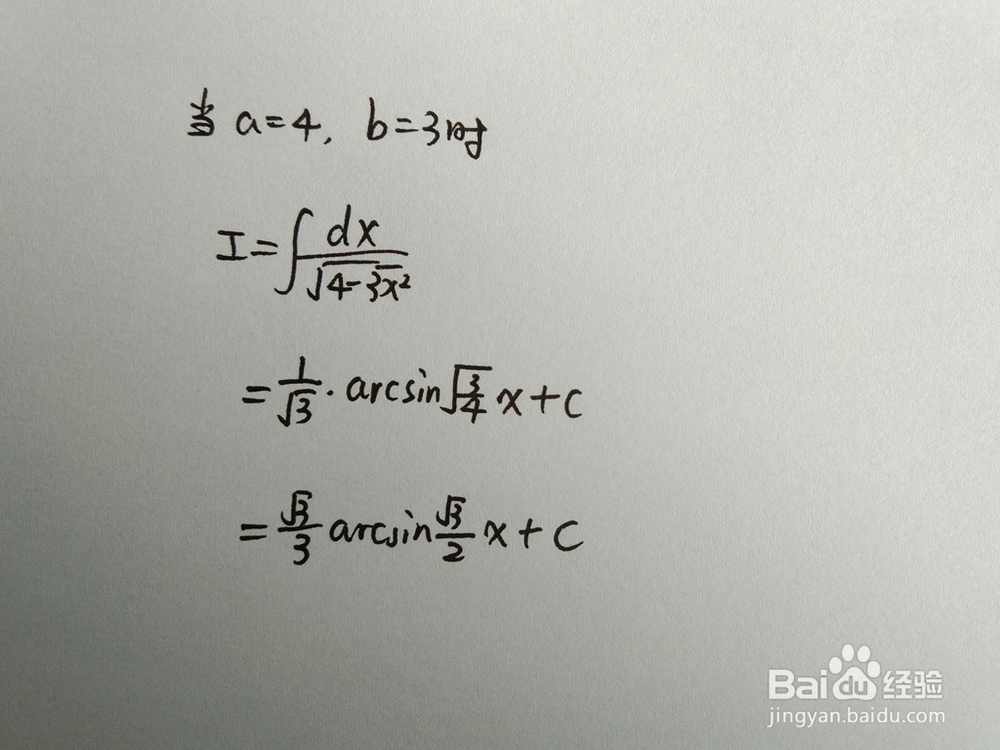 当 a=4, b=3时
I=∫dx/√(4-3x²)
=1/√3·arcsin√(3/4)x+C
=√3/3 arcsin √3/2 x+C
Baidu经验
jingyan.baidu.com